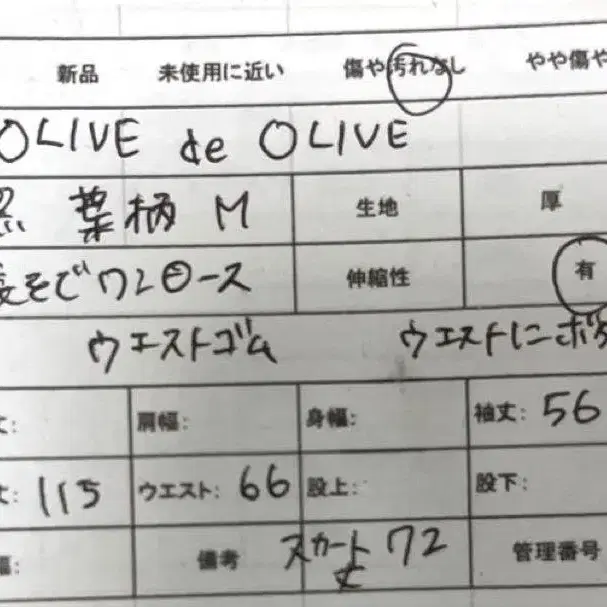 新品 未使用に近い 傷や汚れなし やや傷や
OLIVE de OLIVE
黒 葉柄 M 生地 厚
長そでワンピース 伸縮性 有
ウエストゴム ウエストにボタ
丈: 肩幅: 身幅: 袖丈: 56
丈: 115 ウエスト: 66 股上: 股下:
幅: 備考 スカート丈 72 管理番号